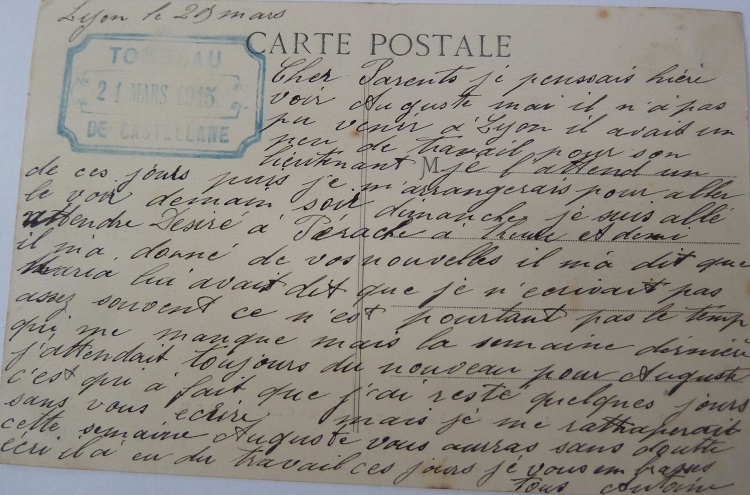 Lyon le 23 mars
CARTE POSTALE
TOMBEAU
21 MARS 1915
DE CASTELLANE
Cher Parents je penssais hière
voir Auguste mai il n'a pas
pu venir à Lyon il avait un
peu de travail pour son
lieutenant je l'attend un
M
de ces jours puis je m'arrangerais pour aller
le voir demain soir dimanche je suis allé
attendre Desiré à Pérache à heure et demi
il m'a donne de vos nouvelles il m'a dit que
Maria lui avait dit que je n'ecrivait pas
assez souvent ce n'est pourtant pas le temp
qui me manque mais la semaine dernière
j'attendait toujours du nouveau pour Auguste
c'est qui à fait que j'ai resté quelques jours
sans vous ecrire mais je me rattraperait
cette semaine Auguste vous auras sans doutte
écri il à eu du travail ces jours je vous embrasse
tous Antoine